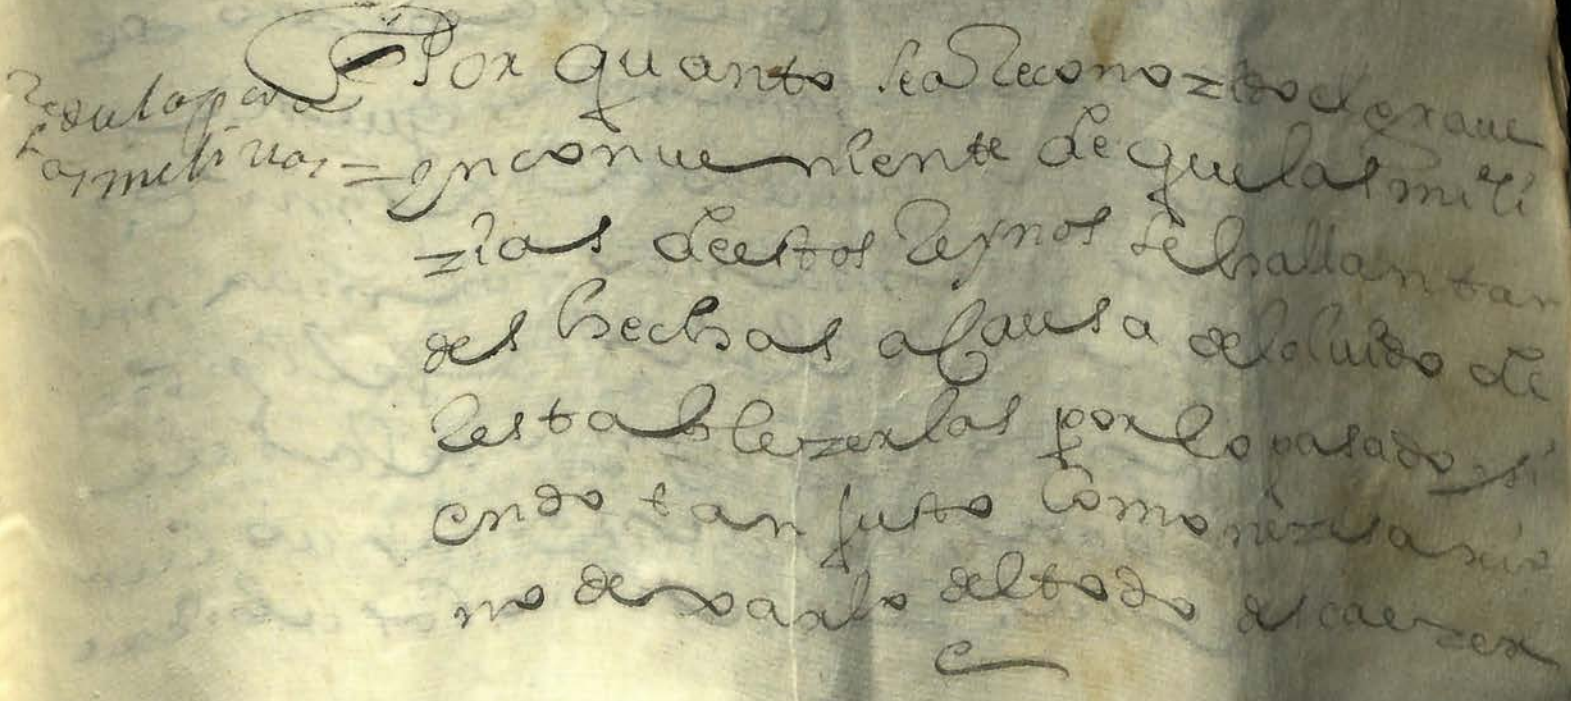 Zedula para
las milizias =
Por quanto sea Reconozido el graue
ynconueniente de que las mili
zias destos Reynos se hallan tan
des hechas a Causa del oluido de
Restablezerlas por lo pasado, si
endo tan justo Como nezesario
no dexarlo del todo descaezer